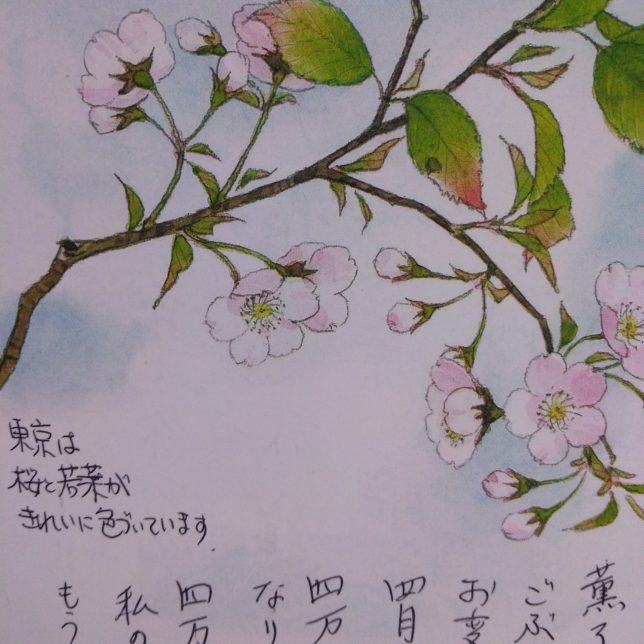 東京は
桜と若葉が
きれいに色づいています.
薫
ごぶ
お変
四月
四万
なり
四万
私の
もう